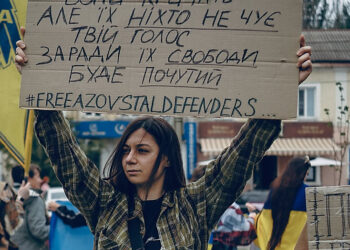 АЛЕ ЇХ НІХТО НЕ ЧУЄ
ТВІЙ ГОЛОС
ЗАРАДИ ЇХ СВОБОДИ
БУДЕ ПОЧУТИЙ
#FREEAZOVSTALDEFENDERS...